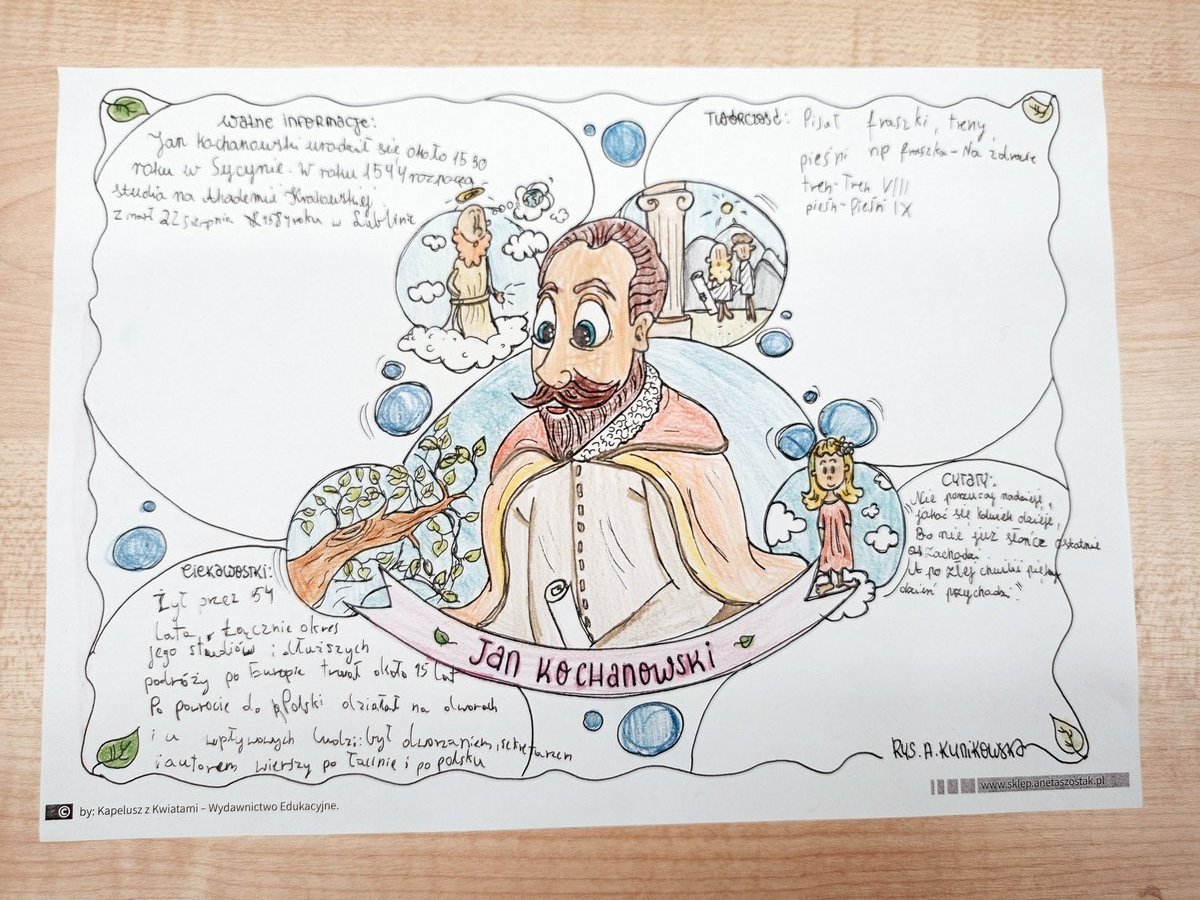 Ważne informacje:
Jan Kochanowski urodził się około 1530
roku w Sycynie. W roku 1544 rozpoczą
studia na Akademii Krakowskiej
zmarł 22 sierpnia 1584 roku w Lublinie
Twórczość: Pisał fraszki, treny,
pieśni np fraszka - Na zdrowie
tren - Tren VIII
pieśń - Pieśń IX
Cytaty:
"Nie porzucaj nadzieje,
jakoć się kolwiek dzieje,
Bo nie już słońce ostatnie
zachodzi
A po złej chwili piękny
dzień przychodzi."
Ciekawostki:
Żył przez 54
lata, Łącznie okres
jego studiów i dłuższych
podróży po Europie trwał około 15 lat
Po powrocie do Polski działał na dworach
i u wpływowych ludzi: był dworzaninem i sekretarzem
i autorem wierszy po łacinie i po polsku
Jan Kochanowski
Rys. A. Kunikowska
www.sklep.anetaszostak.pl
© by: Kapelusz z Kwiatami – Wydawnictwo Edukacyjne.